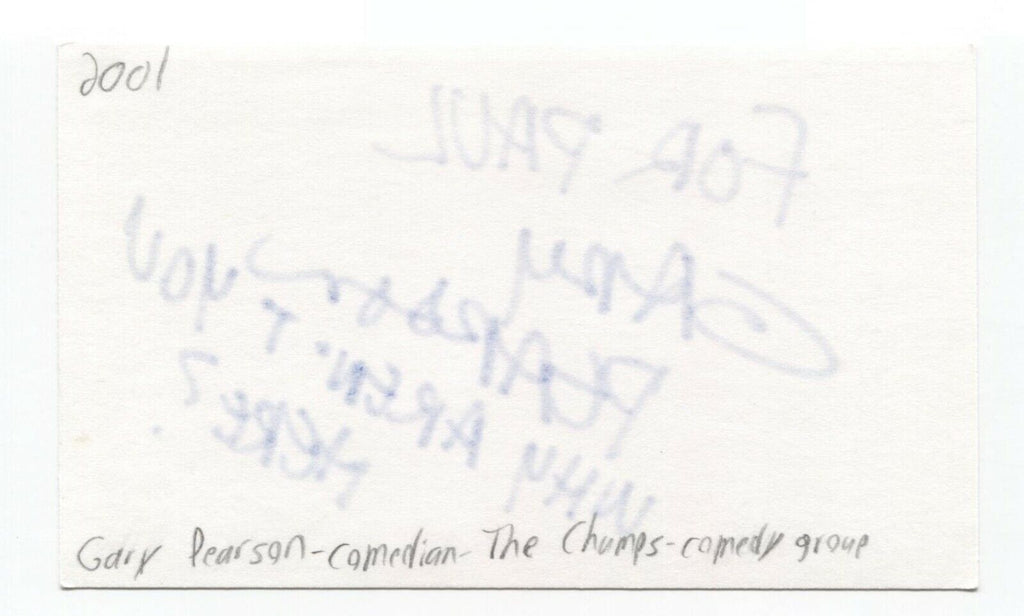 2001
FOR PAUL
GARY
PEARSON
WHY AREN'T YOU
HERE?
Gary Pearson-comedian-The Chumps-comedy group